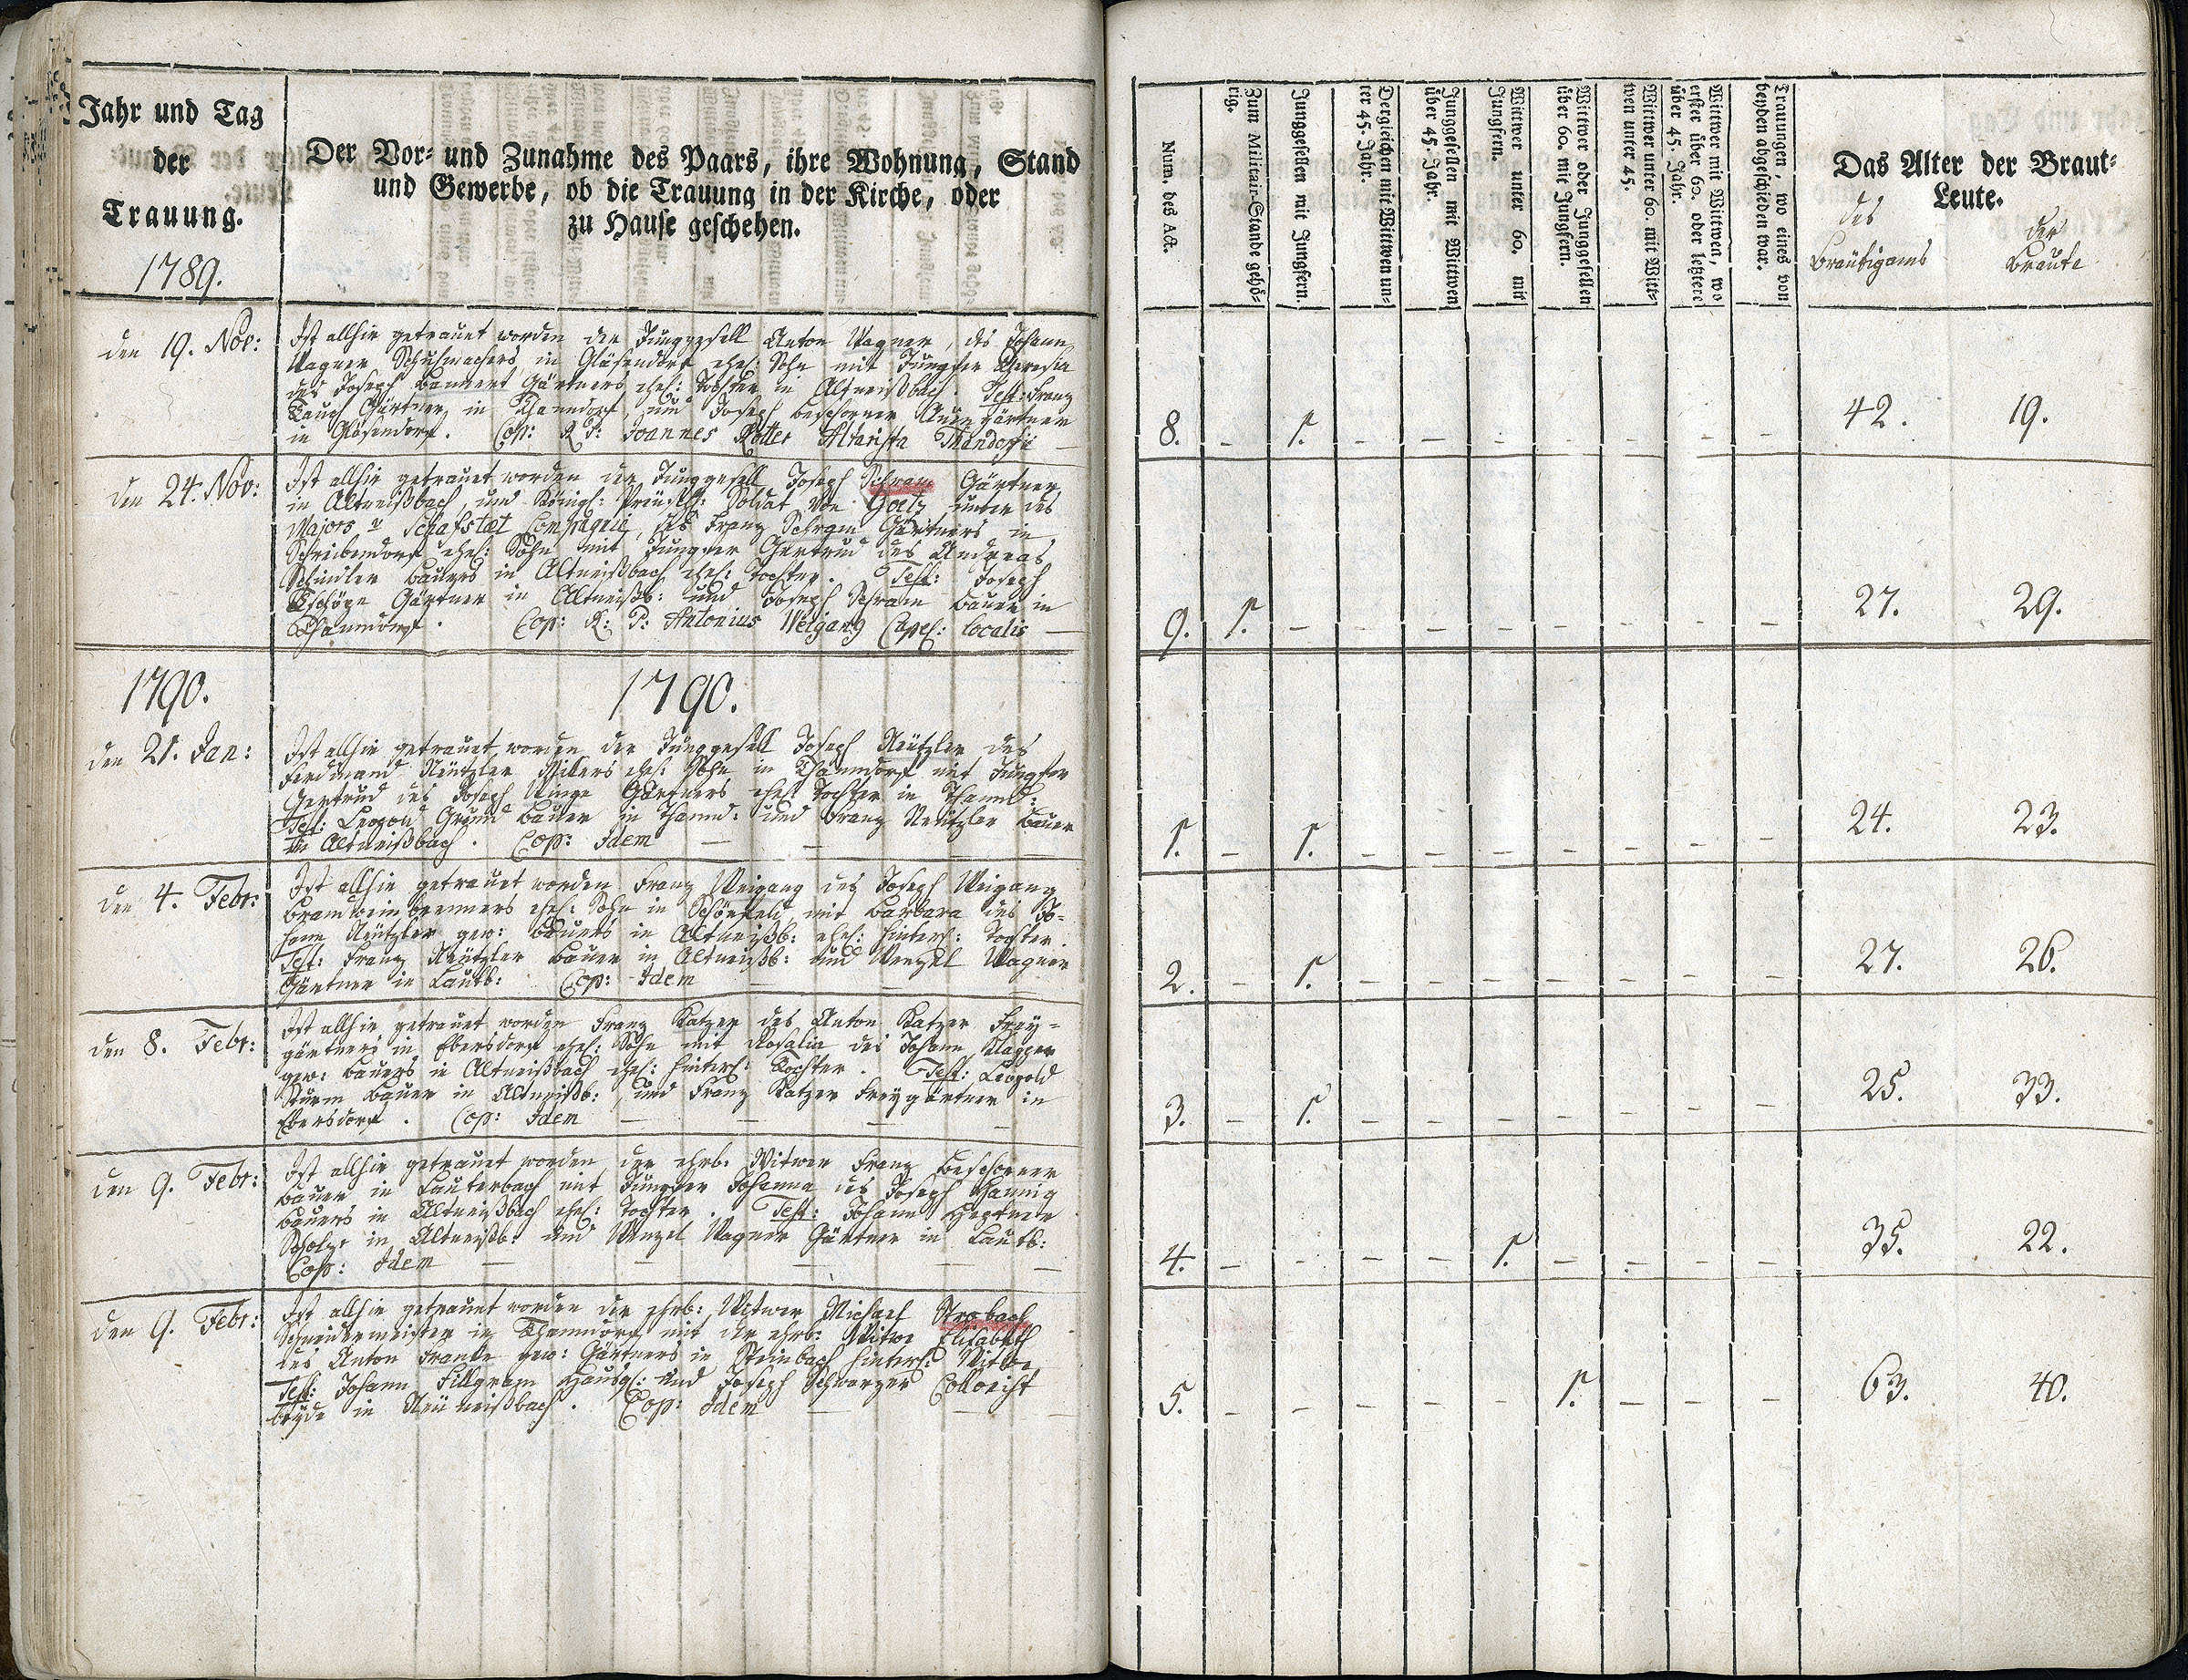 Jahr und Tag
der
Trauung.
1789.
Der Vor- und Zunahme des Paars, ihre Wohnung, Stand
und Gewerbe, ob die Trauung in der Kirche, oder
zu Hause geschehen.
den 19. Nov:
Ist allhie getrauet worden der Junggesell Anton Wagner, des Johann
Wagner Schuhmachers in Gläsendorf ehel: Sohn mit Jungfer Theresia
des Joseph Bannert Gärtners ehel: Tochter in Altneißbach. Test: Franz
Gärtner in Thanndorf, und Joseph Beschorner Auengärtner
in Gläsendorf. Cop: R: P: Joannes Rotter Altarista Thandorfii
den 24. Nov:
Ist allhie getrauet worden der Junggesell Joseph Schram Gärtner
in Altneißbach, und Königl: Preüßl: Soldat von Goetz unter des
Majors v Schafstæt Compagnie, des Franz Schram Gärtners in
Schreibendorf ehel: Sohn mit Jungfer Gertrud des Andreas
Schindler Bauers in Altneißbach ehel: Tochter. Test: Joseph
Tschöpe Gärtner in Altneißb: und Joseph Schram Bauer in
Thanndorf. Cop: R: P: Antonius Weigang Capel: Localis
1790.
1790.
den 21. Jan:
Ist allhie getrauet worden der Junggesell Joseph Neützler des
Ferdinand Neützler ehel: Sohn in Thanndorf mit Jungfer
Gertrud des Joseph Gärtners ehel: Tochter in Thannd:
Test: Leopold Grund Bauer in Thannd: und Franz Neützler Bauer
in Altneißbach. Cop: Idem
den 4. Febr:
Ist allhie getrauet worden Franz Weigang des Joseph Weigang
Brandweinbrenners ehel: Sohn in Schönfeld mit Barbara des Jo=
hann Neützler gew: Bauers in Altneißb: ehel: hinterl: Tochter.
Test: Franz Neützler Bauer in Altneißb: und Wenzel Wagner
Gärtner in Lautb: Cop: Idem
den 8. Febr:
Ist allhie getrauet worden Franz Katzer des Anton Katzer Frey=
gärtners in Ebersdorf ehel: Sohn mit Rosalia des Johann Klapper
gew: Bauers in Altneißbach ehel: hinterl: Tochter. Test: Leopold
Sturm Bauer in Altneißb: und Franz Katzer Freygärtner in
Ebersdorf. Cop: Idem
den 9. Febr:
Ist allhie getrauet worden der ehrb: Witwer Franz Beschorner
Bauer in Lauterbach mit Jungfer Johanna des Joseph Hannig
Bauers in Altneißbach ehel: Tochter. Test: Johann
Scholz in Altneißb: und Wenzel Wagner Gärtner in Lautb:
Cop: Idem
den 9. Febr:
Ist allhie getrauet worden der ehrb: Witwer Michael Strobach
Schneidermeister in Thanndorf mit der ehrb: Witwe Elisabeth
des Anton Franke gew: Gärtners in Steinbach hinterl: Witwe
Test: Johann Fillgram Häusl: und Joseph Schwarzer Colorist
beyde in Neüneißbach. Cop: Idem
Num. des Act.
Zum Militair-Stande gehö-
rig.
Junggesellen mit Jungfern.
Dergleichen mit Wittwen un-
ter 45. Jahr.
Junggesellen mit Wittwen
über 45. Jahr.
Wittwer unter 60. mit
Jungfern.
Wittwer oder Junggesellen
über 60. mit Jungfern.
Wittwer unter 60. mit Witt-
wen unter 45.
Wittwer mit Wittwen, wo
erster über 60. oder letztere
über 45. Jahr.
Trauungen, wo eines von
beyden abgeschieden war.
Das Alter der Braut-
Leute.
des
Bräutigams
der
Braute
8. – 1. – – – – – – – 42. 19.
9. 1. – – – – – – – – 27. 29.
1. – 1. – – – – – – – 24. 23.
2. – 1. – – – – – – – 27. 26.
3. – 1. – – – – – – – 25. 33.
4. – – – – 1. – – – – 35. 22.
5. – – – – – 1. – – – 63. 40.